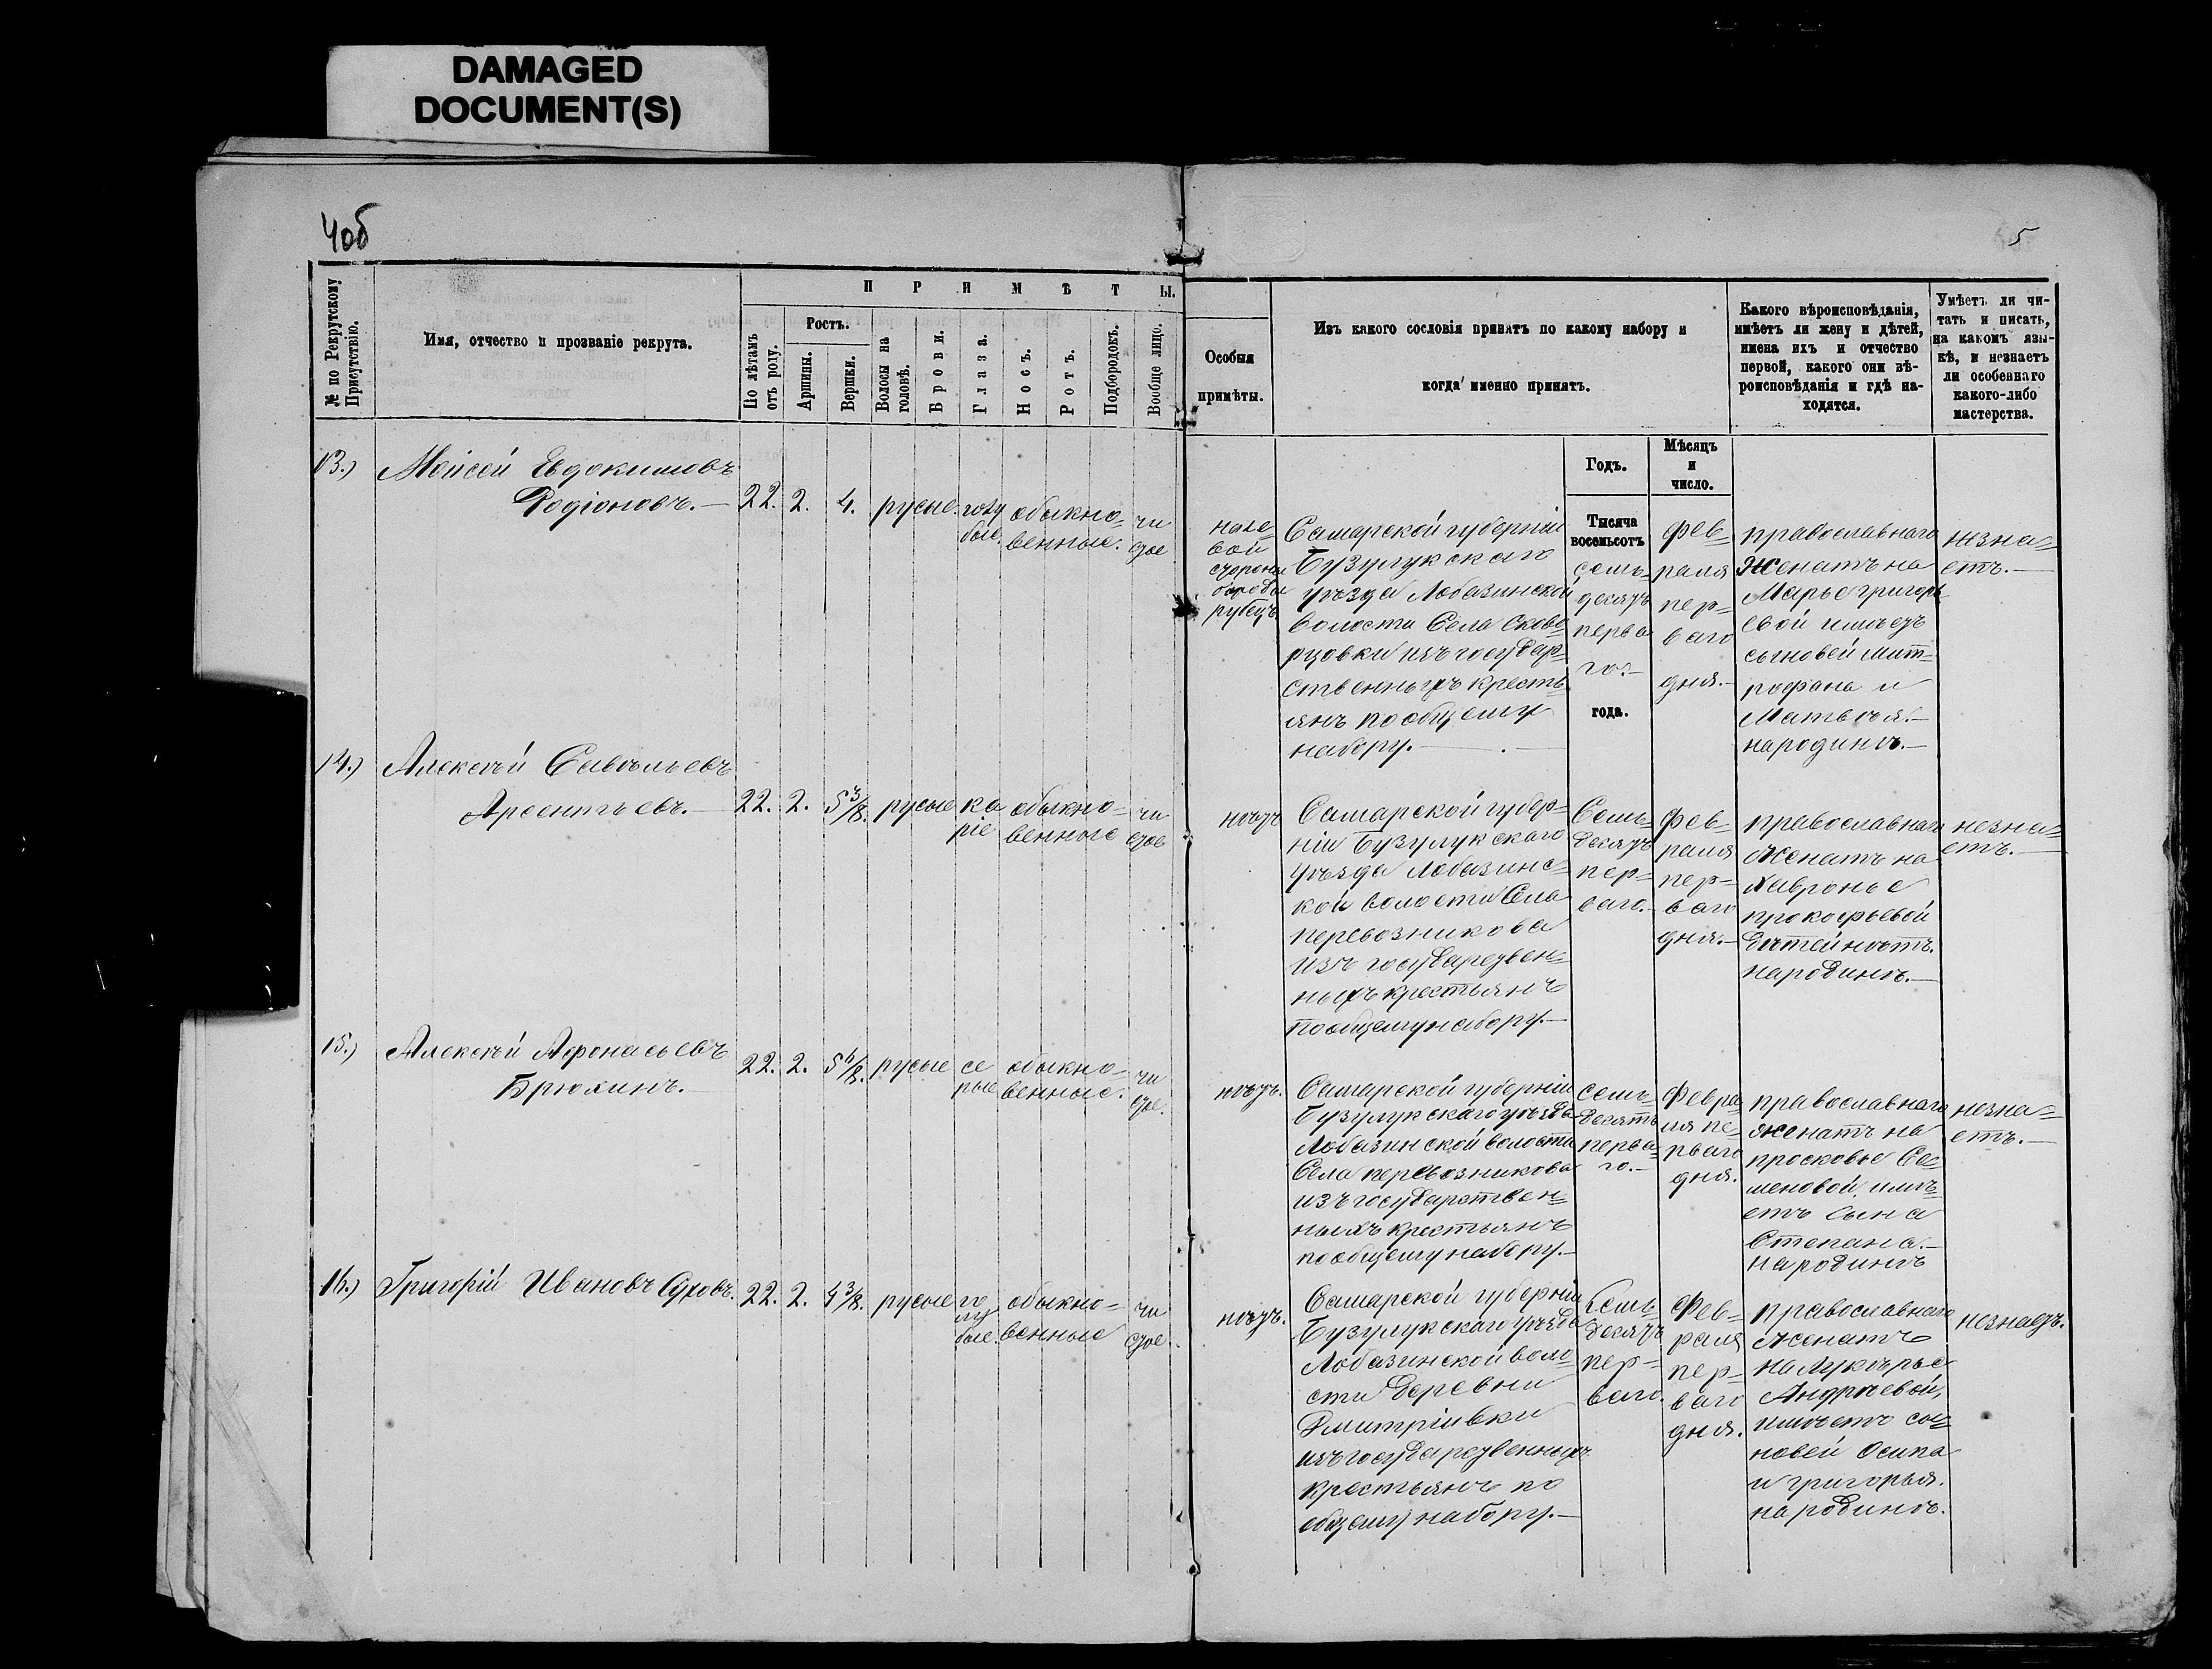 DAMAGED
DOCUMENT(S)
4об
5
№ по Рекрутскому
Присутствію.
Имя, отчество и прозваніе рекрута.
П Р И М Ѣ Т Ы.
По лѣтамъ
отъ роду.
Ростъ.
Аршины.
Вершки.
Волосы на
головѣ.
Брови.
Глаза.
Носъ.
Ротъ.
Подбородокъ.
Вообще лицо.
Особыя
примѣты.
Изъ какого сословія принятъ по какому набору и
когда именно принятъ.
Какого вѣроисповѣданія,
имѣетъ ли жену и дѣтей,
имена ихъ и отчество
первой, какого они вѣ-
роисповѣданія и гдѣ на-
ходятся.
Умѣетъ ли чи-
тать и писать,
на какомъ язы-
кѣ, и незнаетъ
ли особеннаго
какого-либо
мастерства.
Годъ.
Мѣсяцъ
и
число.
13.)
Моисей Евдокимовъ
Родіоновъ.—
22.
2.
4.
русые.
голу
бые.
обыкно=
венные.
чи
стое
на ле=
вой
стороне
бороды
рубецъ
Самарской губерніи
Бузулукскаго
уѣзда Лобазинской
волости Села Скво=
рцовки изъ государ=
ственныхъ кресть=
янъ по общему
набору.—
Тысяча
восемьсотъ
семь=
десятъ
перва
го.—
года.
Фев=
раля
пер=
ваго
дня.—
православнаго
женатъ на
Марье григорь
евой имѣетъ
сыновей мит=
рофана и
Матвея.—
народинѣ.—
незна=
етъ.—
14.)
Алексѣй Савельевъ
Арсентьевъ.—
22.
2.
5 3/8.
русые
ка
ріе
обыкно=
венные
чи
стое
нѣтъ
Самарской губер=
ніи Бузулукскаго
уѣзда Лобазинс=
кой волости Села
перевозникова
изъ государствен=
ныхъ крестьянъ
пообщему набору.—
Семь=
десятъ
пер=
ваго.—
Фев=
раля
пер=
ваго
дня.—
православнаго
женатъ на
Хавронье
прокофьевой
дѣтей нѣтъ.
народинѣ.—
незна=
етъ.—
15.)
Алексѣй Афонасьевъ
Брюхинъ.—
22.
2.
5 6/8.
русые
се
рые
обыкно=
венные.
чи
стое.
нѣтъ.
Самарской губерніи
Бузулукскаго уѣзда
Лобазинской волости
Села перевозникова
изъ государствен=
ныхъ крестьянъ
по общему набору.—
Семь=
десятъ
перва=
го.—
Февра=
ля пе=
рваго
дня.
православнаго
женатъ на
просковье Се=
меновой, имѣ=
етъ сына
Степана.—
народинѣ
незна=
етъ.—
16.)
Григорій Ивановъ Суховъ.
22.
2.
4 3/8.
русые
го
лу
бые.
обыкно=
венные
чи
стое.
нѣтъ.
Самарской губерніи
Бузулукскаго уѣзда
Лобазинской воло=
сти Деревни
Дмитріивки
изъ государственныхъ
крестьянъ по
общему набору.—
Семь=
десятъ
пер=
ваго.
Фев=
раля
пер=
ваго
дня.
православнаго
женатъ
на Лукерье
Андреевой,
имѣетъ сы=
новей Осипа
и григорья.
на родинѣ.
незнаетъ.